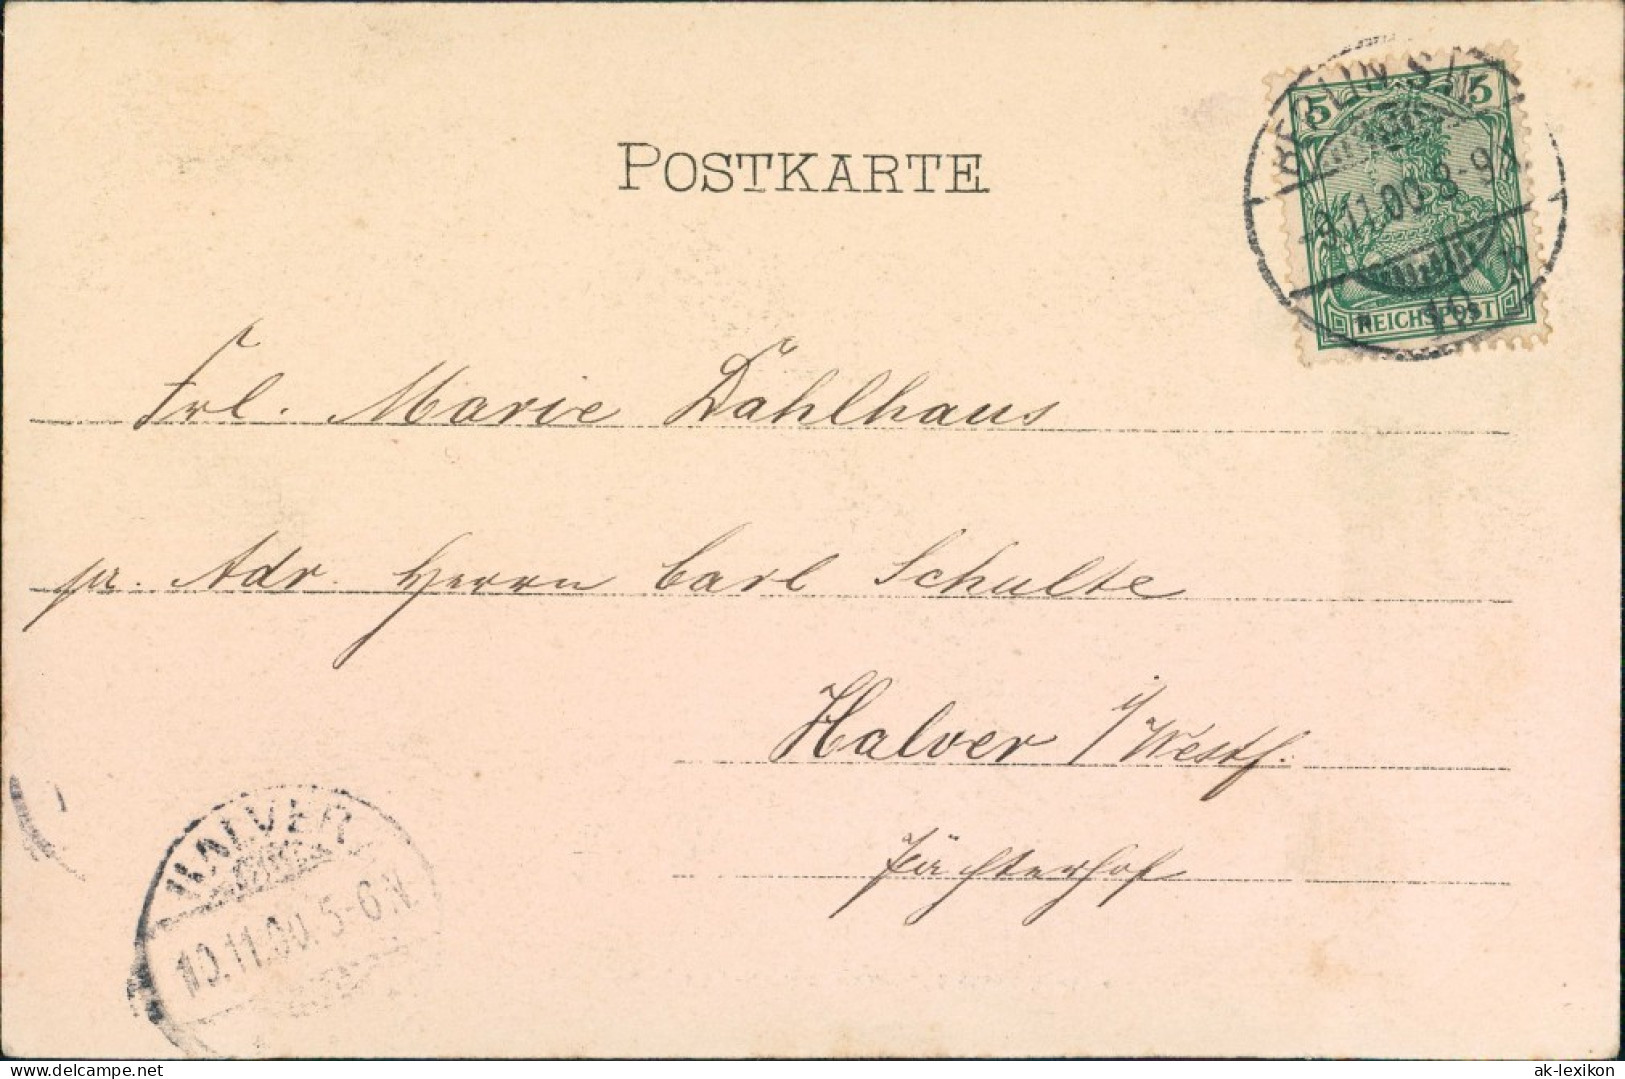 POSTKARTE
5 5
BERLIN S.W.
-9.11.00. 8-9
REICHSPOST
Frl. Marie Dahlhaus
pr. Adr. Herrn Carl Schulte
Halver i/Westf.
HALVER
10.11.00. 5-6N.
ak-lexikon